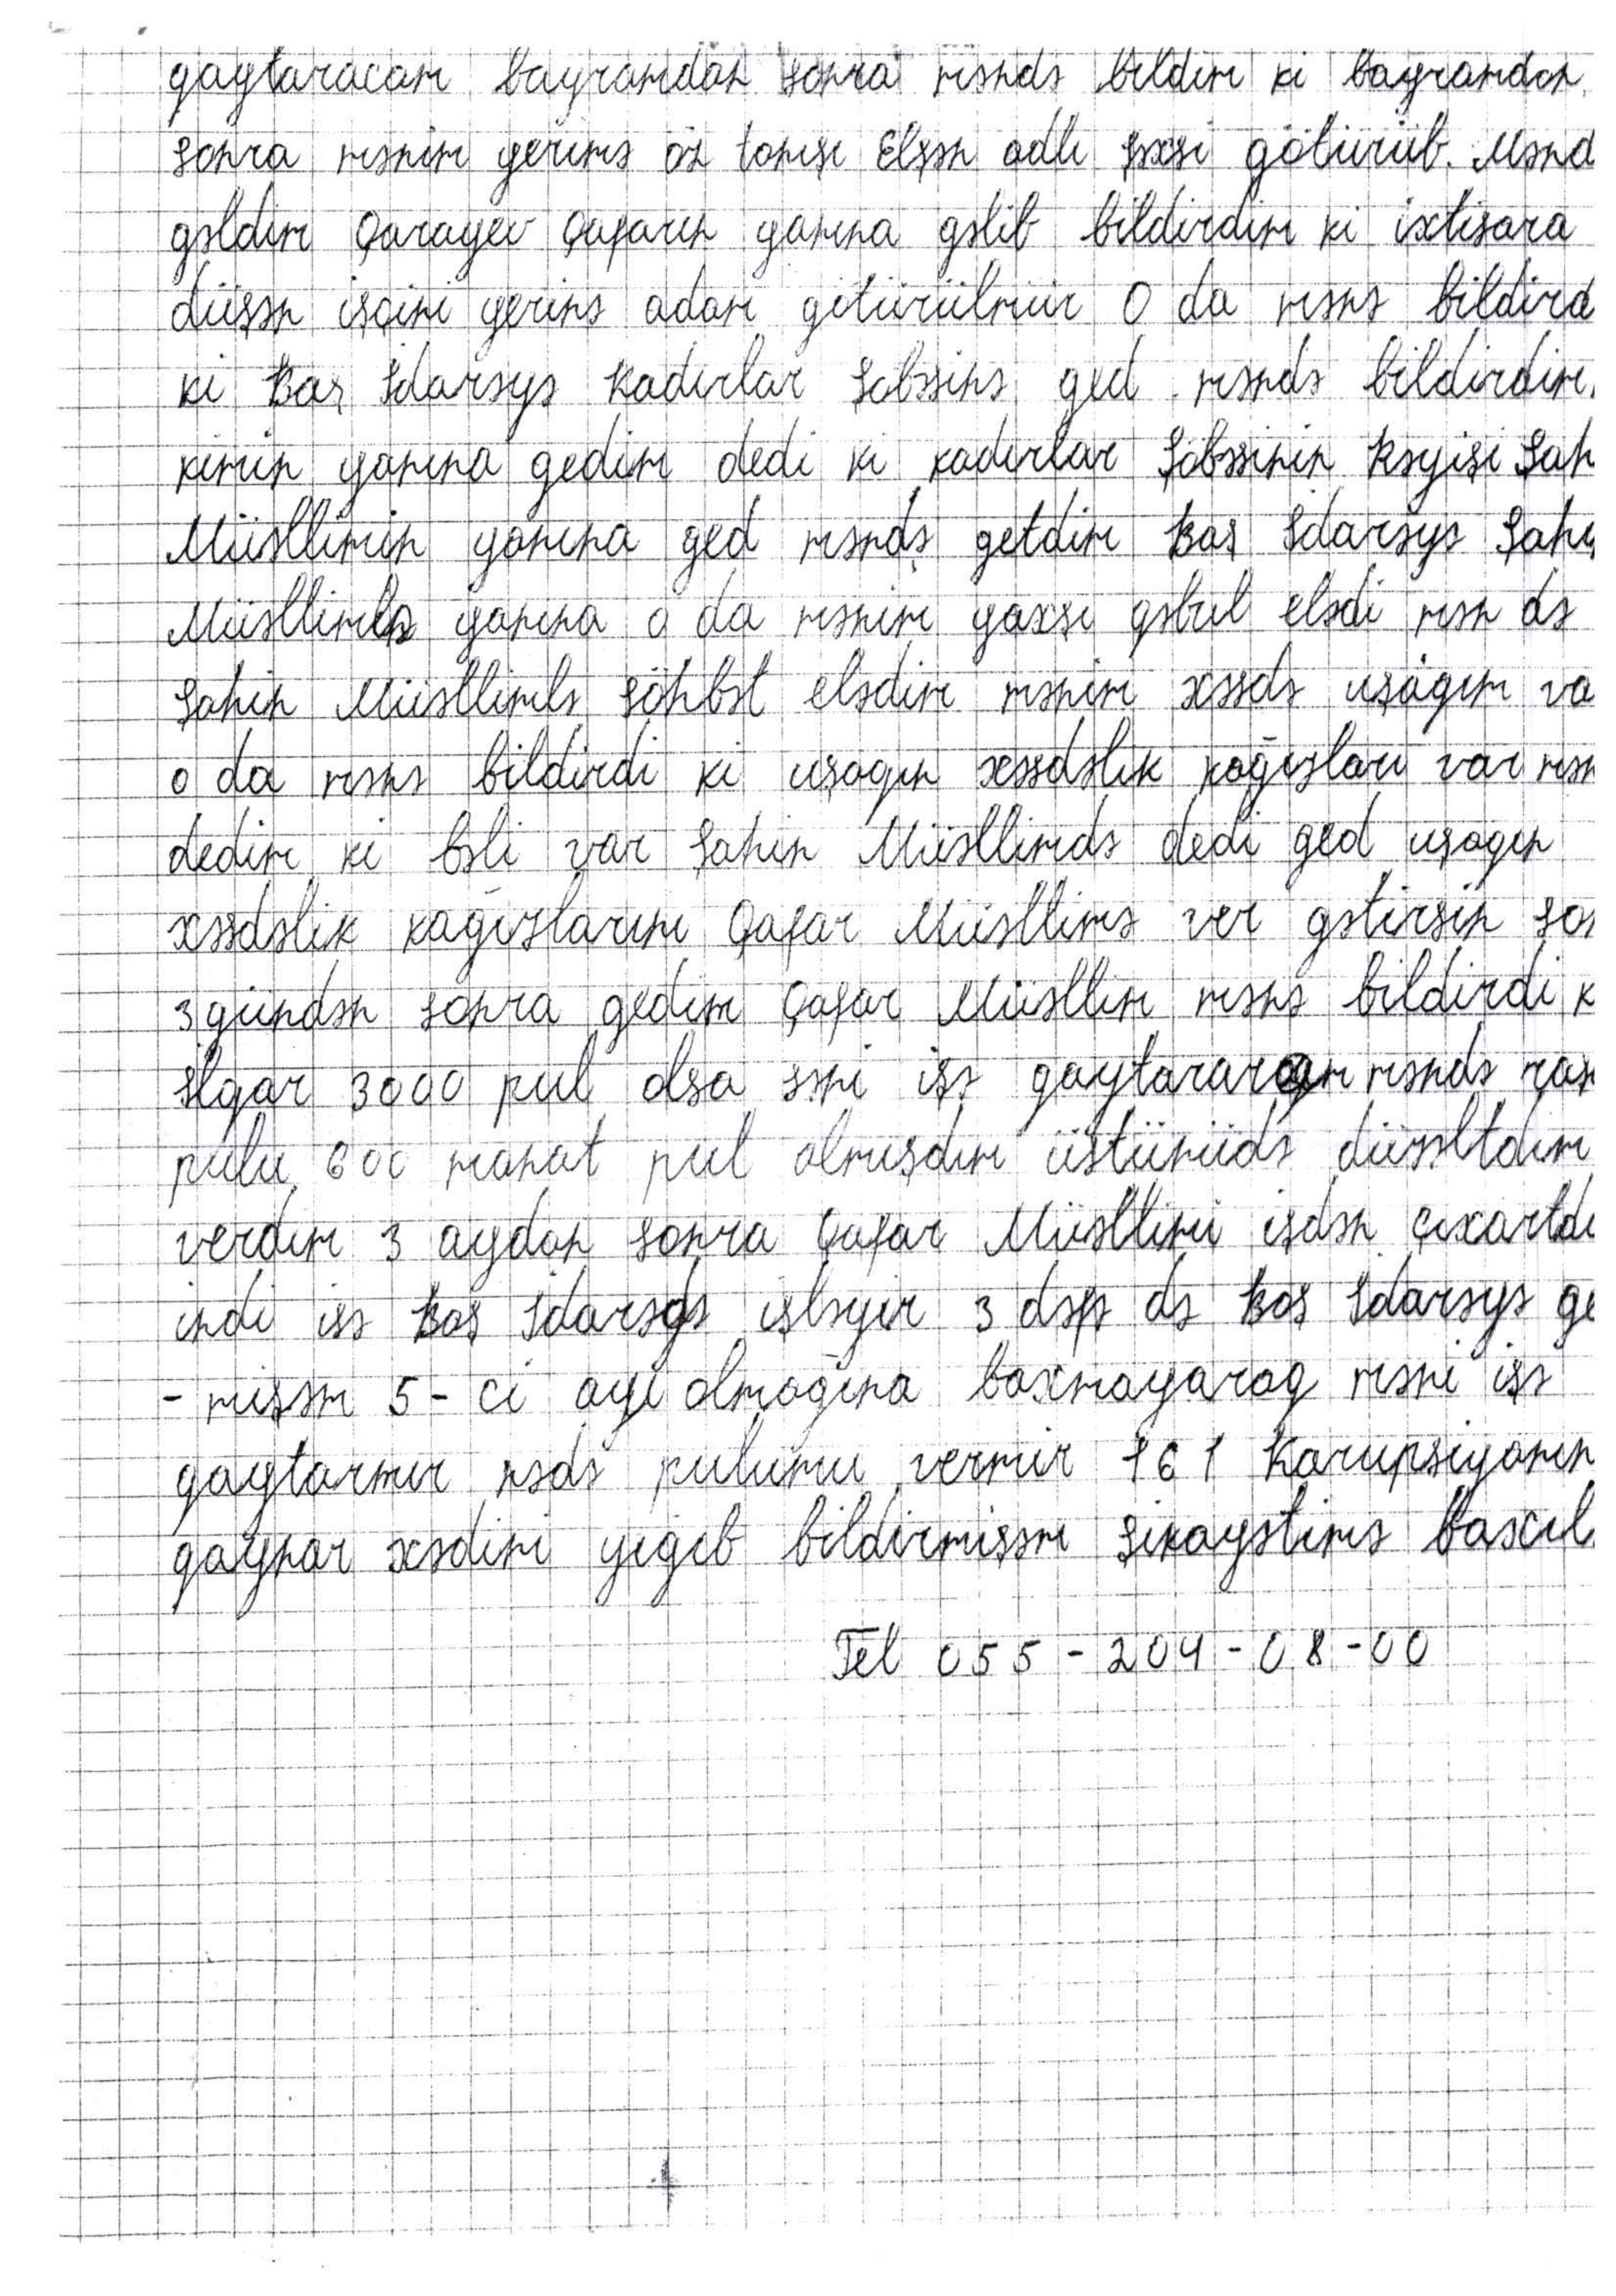 qaytaracam bayramdan sonra məndə bildim ki bayramdan
sonra mənim yerimə öz tanışı Elşən adlı şəxsi götürüb. Mənd
gəldim Qarayev Qafarın yanına gəlib bildirdim ki ixtisara
düşən işçini yerinə adam götürülmür O da mənə bildird
ki Baş İdarəyə kadırlar Şobəsinə ged məndə bildirdim
kimin yanına gedim dedi ki kadırlar Şöbəsinin Rəyisi Şah
Müəllimin yanına ged məndə getdim Baş İdarəyə Şahi
Müəllimin yanına o da mənim yaxşı qəbul elədi mən də
Şahin Müəllimlə söhbət elədim mənim xəsdə uşağım va
o da mənə bildirdi ki uşağın xəsdəlik kağızları var mən
dedim ki bəli var Şahin Müəllimdə dedi ged uşağın
xəsdəlik kağızlarını Qafar Müəllimə ver gətirsin so
3 gündən sonra gedim Qafar Müəllim mənə bildirdi k
əlgar 3000 pul olsa səni işə qaytararam məndə
pulu 600 manat pul almışdım üstünüdə düzəltdim
verdim 3 aydan sonra Qafar Müəllimi işdən çıxartdı
indi isə Baş İdarədə işləyir 3 dəfə də Baş İdarəyə ge
- mişəm 5-ci ayı olmağına baxmayarag məni işə
qaytarmır nədə pulumu vermir 161 Karupsiyanın
qaynar xədini yığıb bildirmişəm şikayətimə baxıl
Tel 055-204-08-00